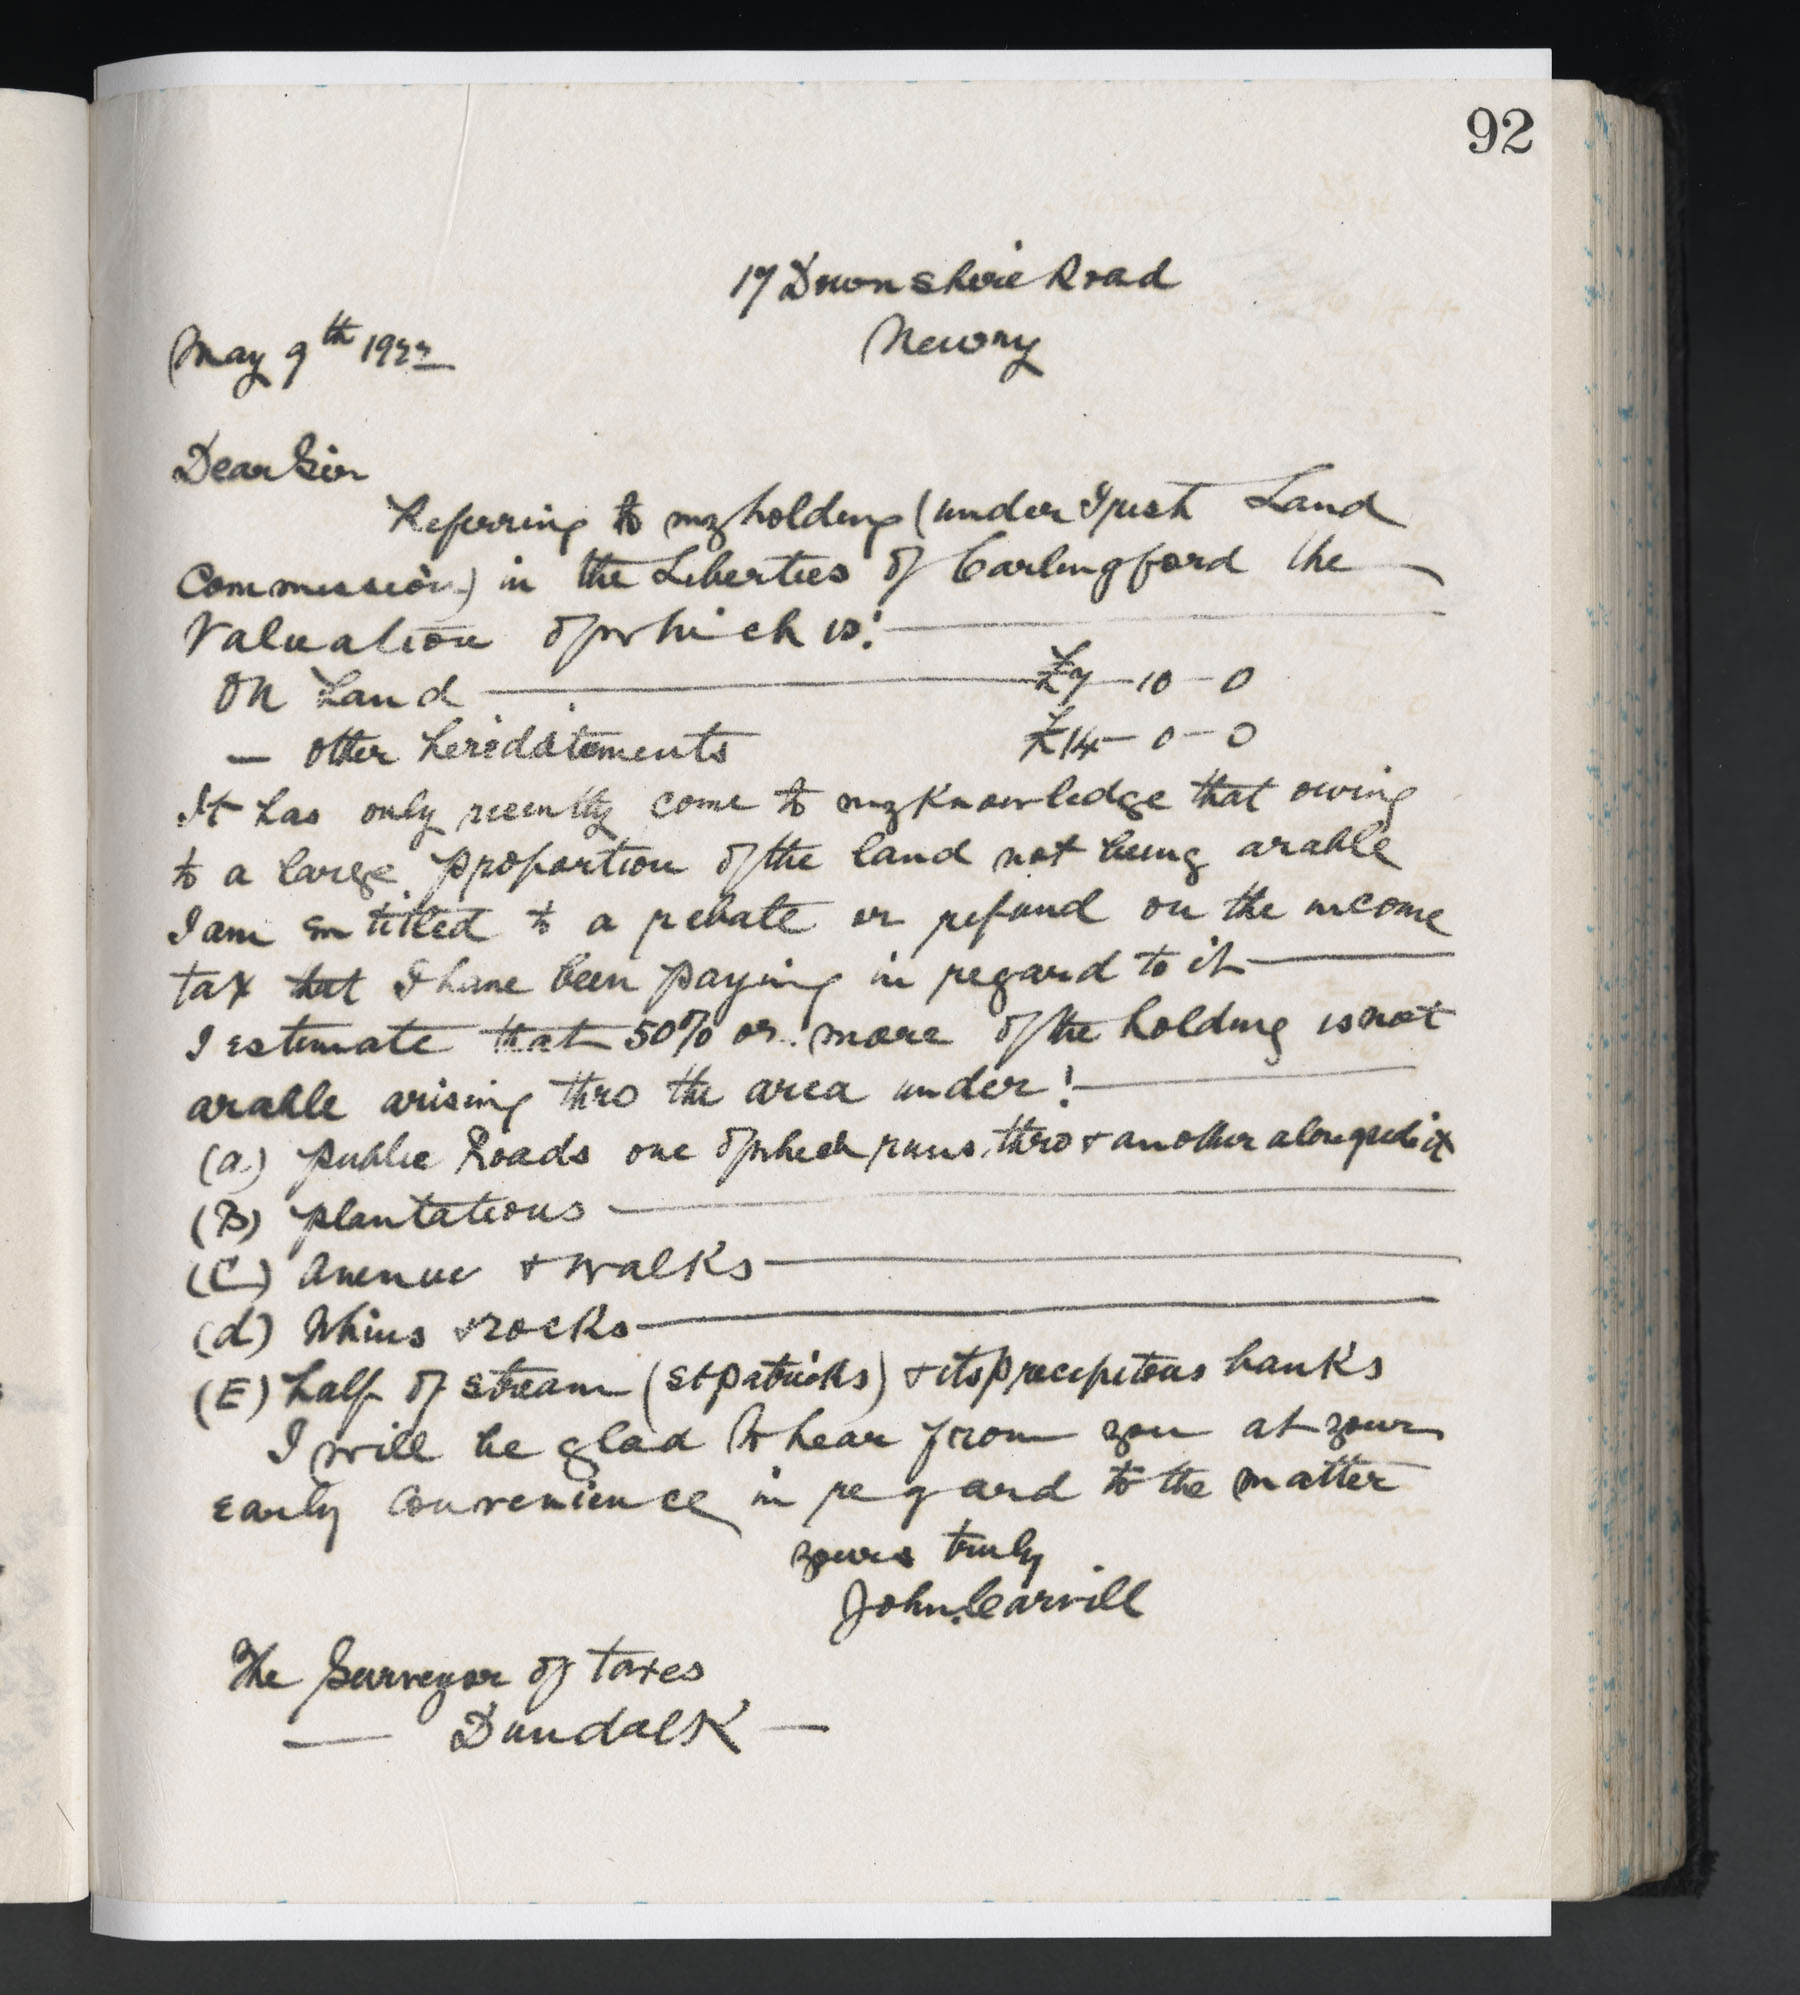 92
17 Downshire Road
Newry
May 9th 1922
Dear Sir
Referring to my holding (under Irish Land
Commission) in the Liberties of Carlingford the
Valuation of which is:
On Land £7-10-0
— other heriditements £14-0-0
It has only recently come to my knowledge that owing
to a large proportion of the land not being arable
I am entitled to a rebate or refund on the income
tax that I have been paying in regard to it
I estimate that 50% or more of the holding is not
arable arising thro the area under:
(a) public Roads one of which runs thro + another alongside it
(B) plantations
(C) Avenue + walks
(d) Whins + rocks
(E) half of stream (St Patricks) + its precipitous banks
I will be glad to hear from you at your
early convenience in regard to the matter
yours truly
John Carvill
The Surveyor of taxes
— Dundalk —